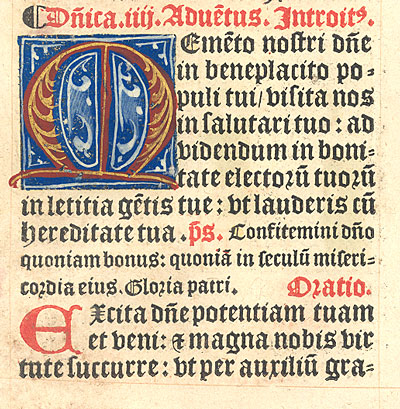 Dñica.iiij. Aduẽtus. Introitꝰ.
Memẽto nostri dñe
in beneplacito po-
puli tui/ visita nos
in salutari tuo: ad
videndum in boni-
tate electorũ tuorũ
in letitia gẽtis tue: vt lauderis cũ
hereditate tua. p̃s. Confitemini dño
quoniam bonus: quoniã in seculũ miseri-
cordia eius. Gloria patri. Oratio.
Excita dñe potentiam tuam
et veni: ⁊ magna nobis vir
tute succurre: vt per auxiliũ gra-